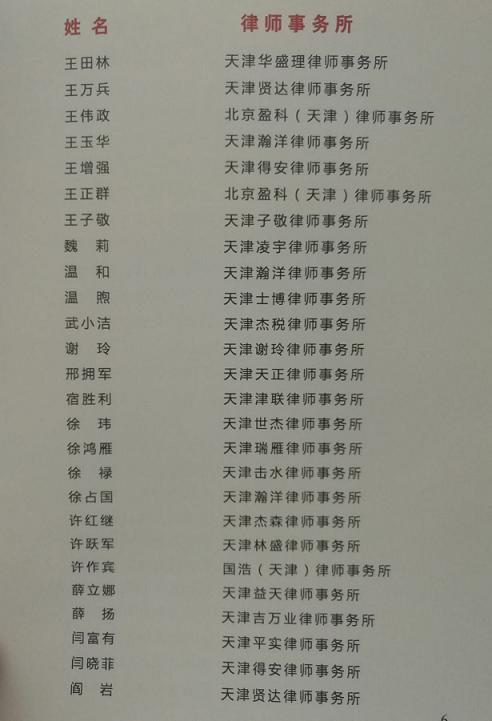 姓名 律师事务所
王田林 天津华盛理律师事务所
王万兵 天津贤达律师事务所
王伟政 北京盈科（天津）律师事务所
王玉华 天津瀚洋律师事务所
王增强 天津得安律师事务所
王正群 北京盈科（天津）律师事务所
王子敬 天津子敬律师事务所
魏 莉 天津凌宇律师事务所
温 和 天津瀚洋律师事务所
温 煦 天津士博律师事务所
武小洁 天津杰税律师事务所
谢 玲 天津谢玲律师事务所
邢拥军 天津天正律师事务所
宿胜利 天津津联律师事务所
徐 玮 天津世杰律师事务所
徐鸿雁 天津瑞雁律师事务所
徐 禄 天津击水律师事务所
徐占国 天津瀚洋律师事务所
许红继 天津杰森律师事务所
许跃军 天津林盛律师事务所
许作宾 国浩（天津）律师事务所
薛立娜 天津益天律师事务所
薛 扬 天津吉万业律师事务所
闫富有 天津平实律师事务所
闫晓菲 天津得安律师事务所
阎 岩 天津贤达律师事务所
6